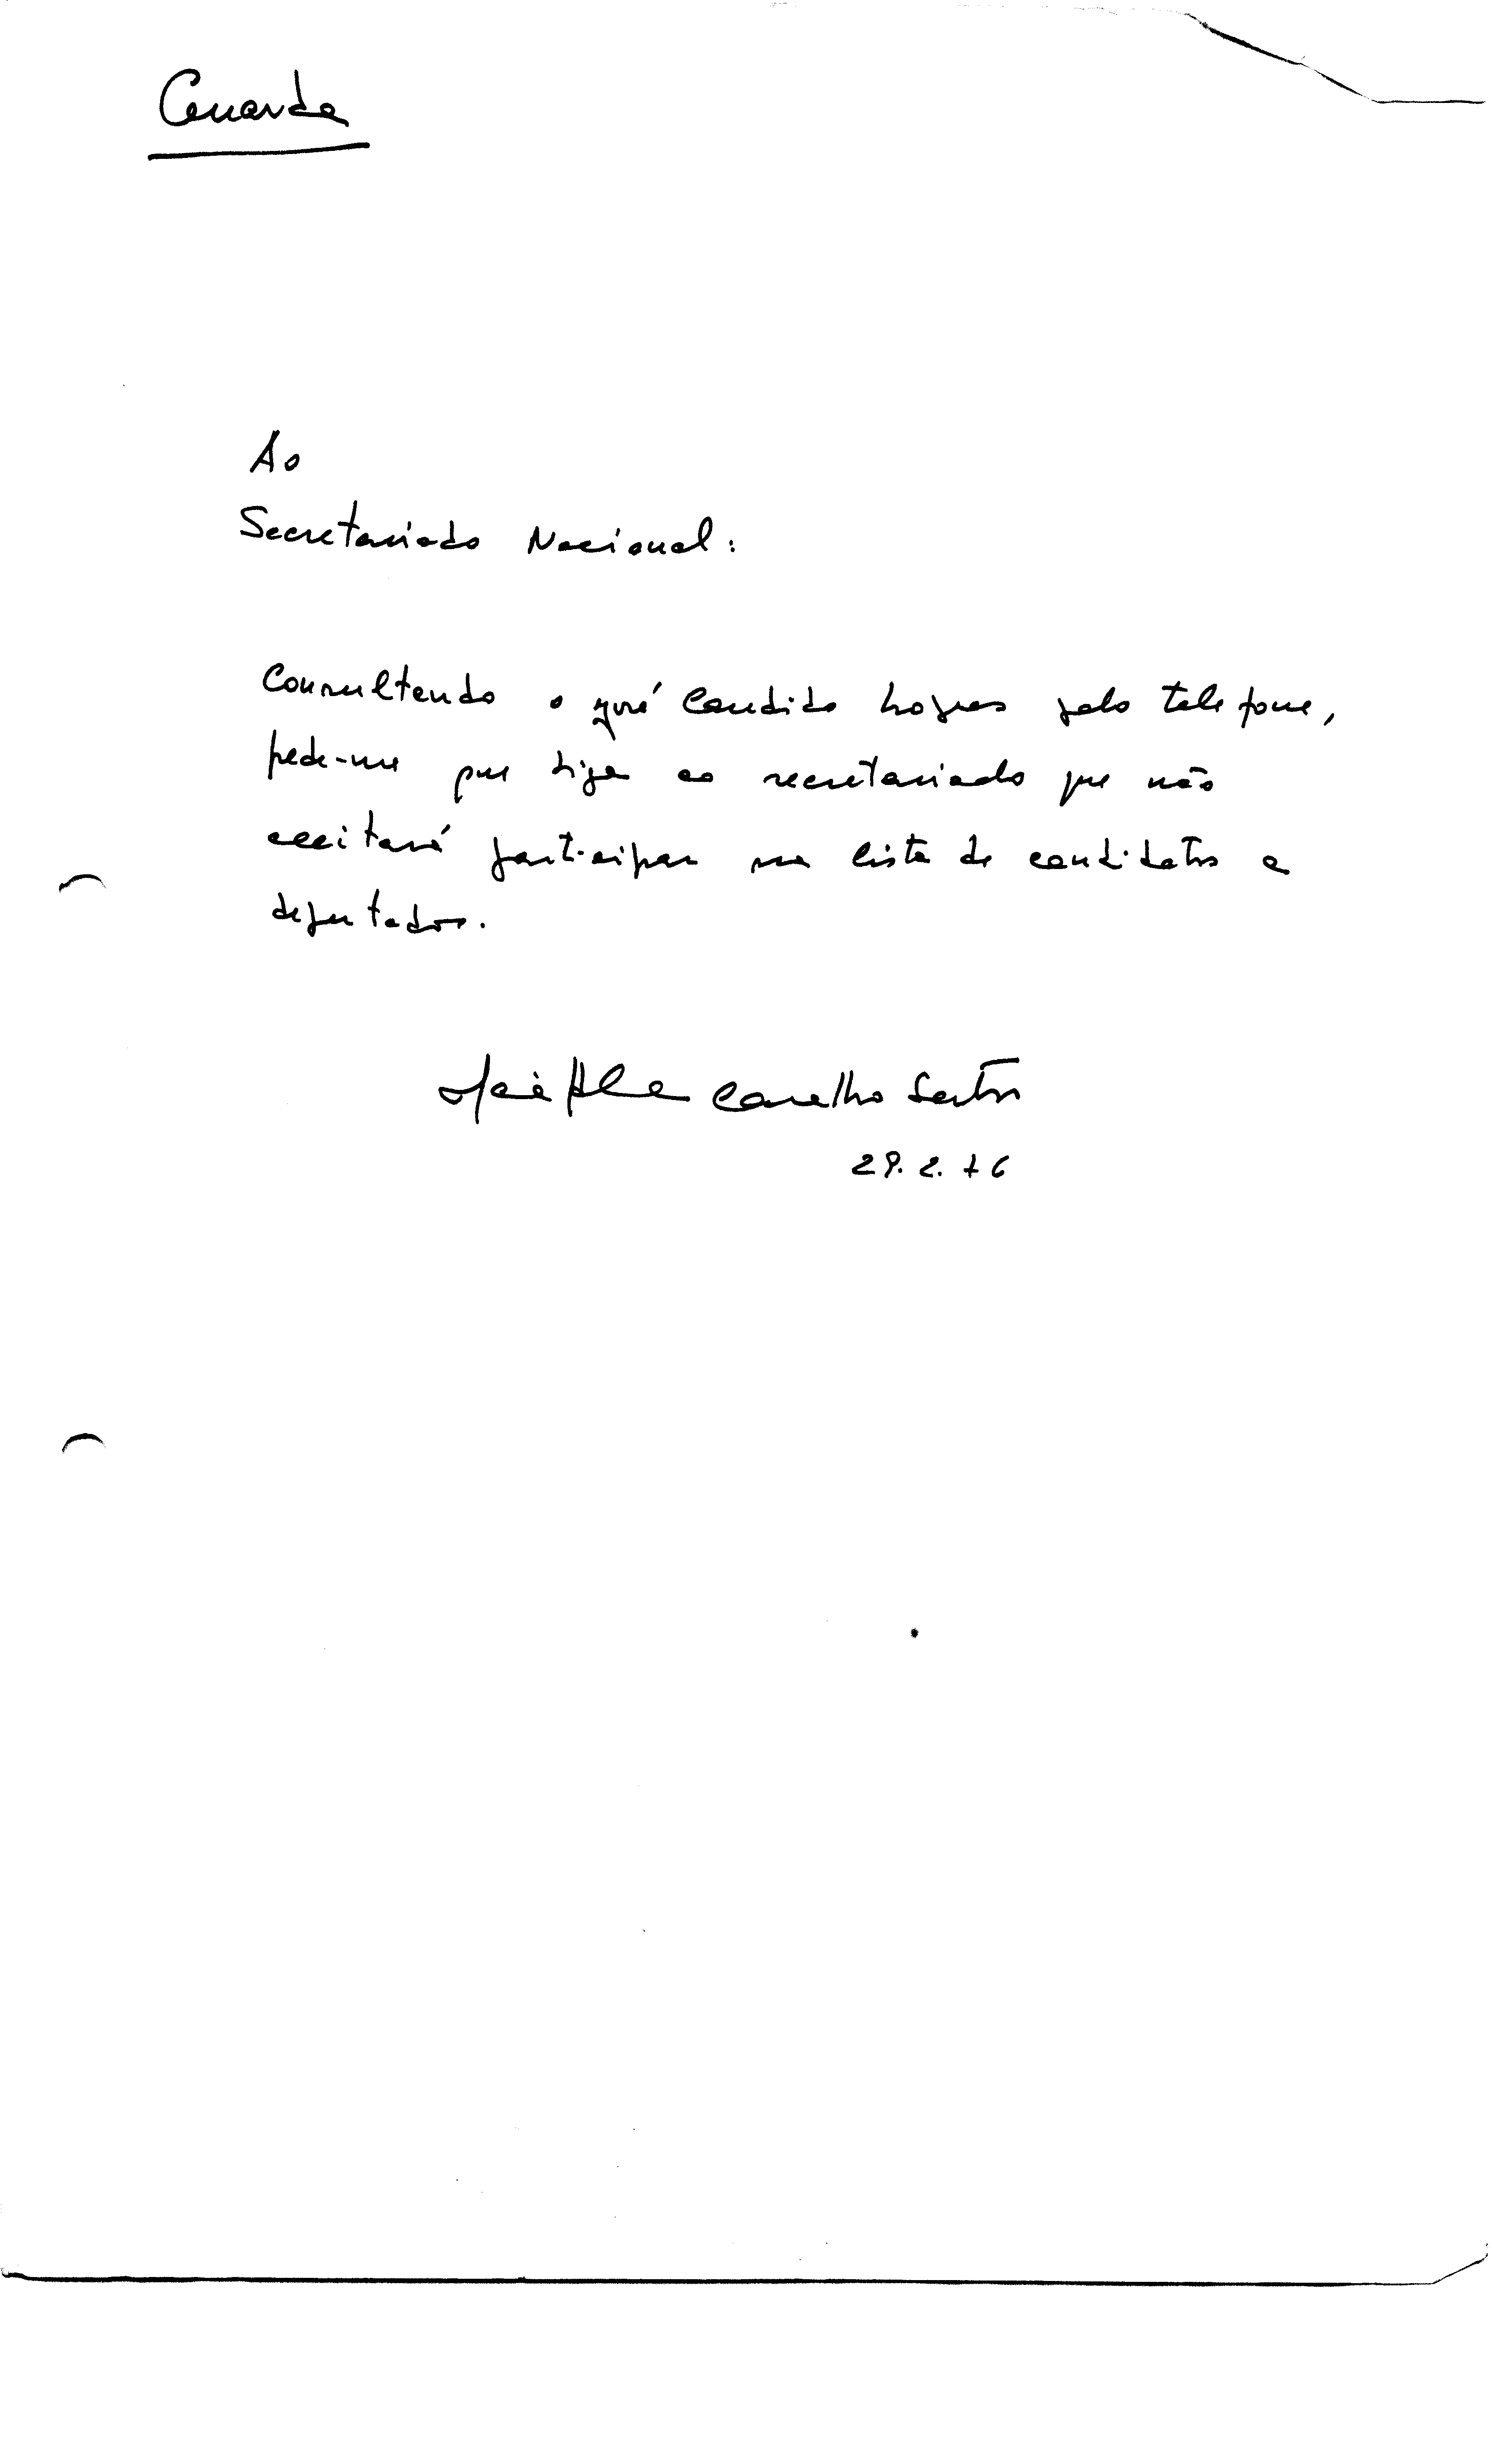 Ao
Secretariado Nacional:
Consultando o José Candido Lopes pelo telefone,
pede-me que diga ao secretariado que não
aceitará participar na lista de candidatos a
deputados.
Carvalho Santos
28.2.76